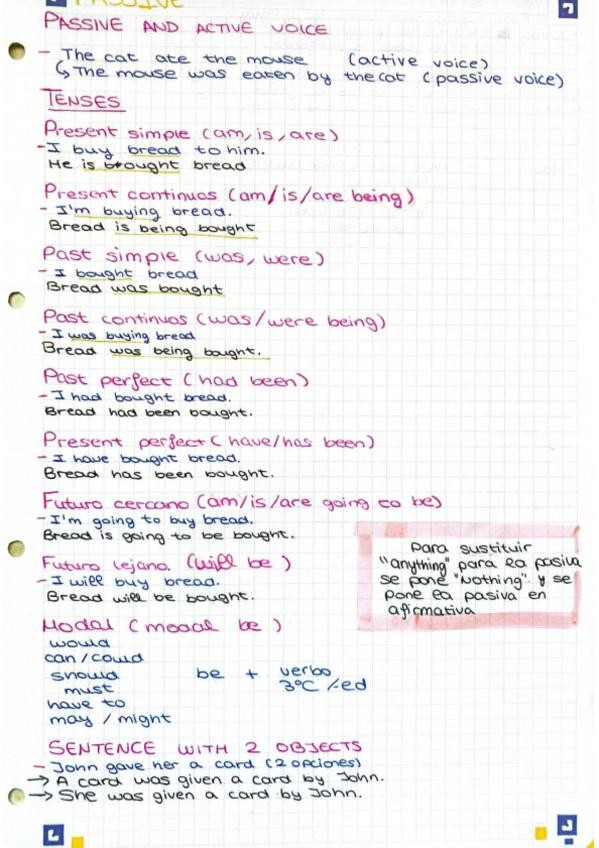 PASSIVE
PASSIVE AND ACTIVE VOICE
- The cat ate the mouse (active voice)
↳ The mouse was eaten by the cat (passive voice)
TENSES
Present simple (am, is, are)
- I buy bread to him.
He is brought bread
Present continuos (am/is/are being)
- I'm buying bread.
Bread is being bought
Past simple (was, were)
- I bought bread
Bread was bought
Past continuos (was/were being)
- I was buying bread
Bread was being bought.
Past perfect (had been)
- I had bought bread.
Bread had been bought.
Present perfect (have/has been)
- I have bought bread.
Bread has been bought.
Futuro cercano (am/is/are going to be)
- I'm going to buy bread.
Bread is going to be bought.
Futuro lejano. (will be)
- I will buy bread.
Bread will be bought.
Para sustituir
"anything" para la pasiva
se pone "Nothing". y se
pone la pasiva en
afirmativa
Modal (modal be)
would
can / could
should be + verbo
must 3ºC /-ed
have to
may / might
SENTENCE WITH 2 OBJECTS
- John gave her a card (2 opciones)
→ A card was given a card by John.
→ She was given a card by John.